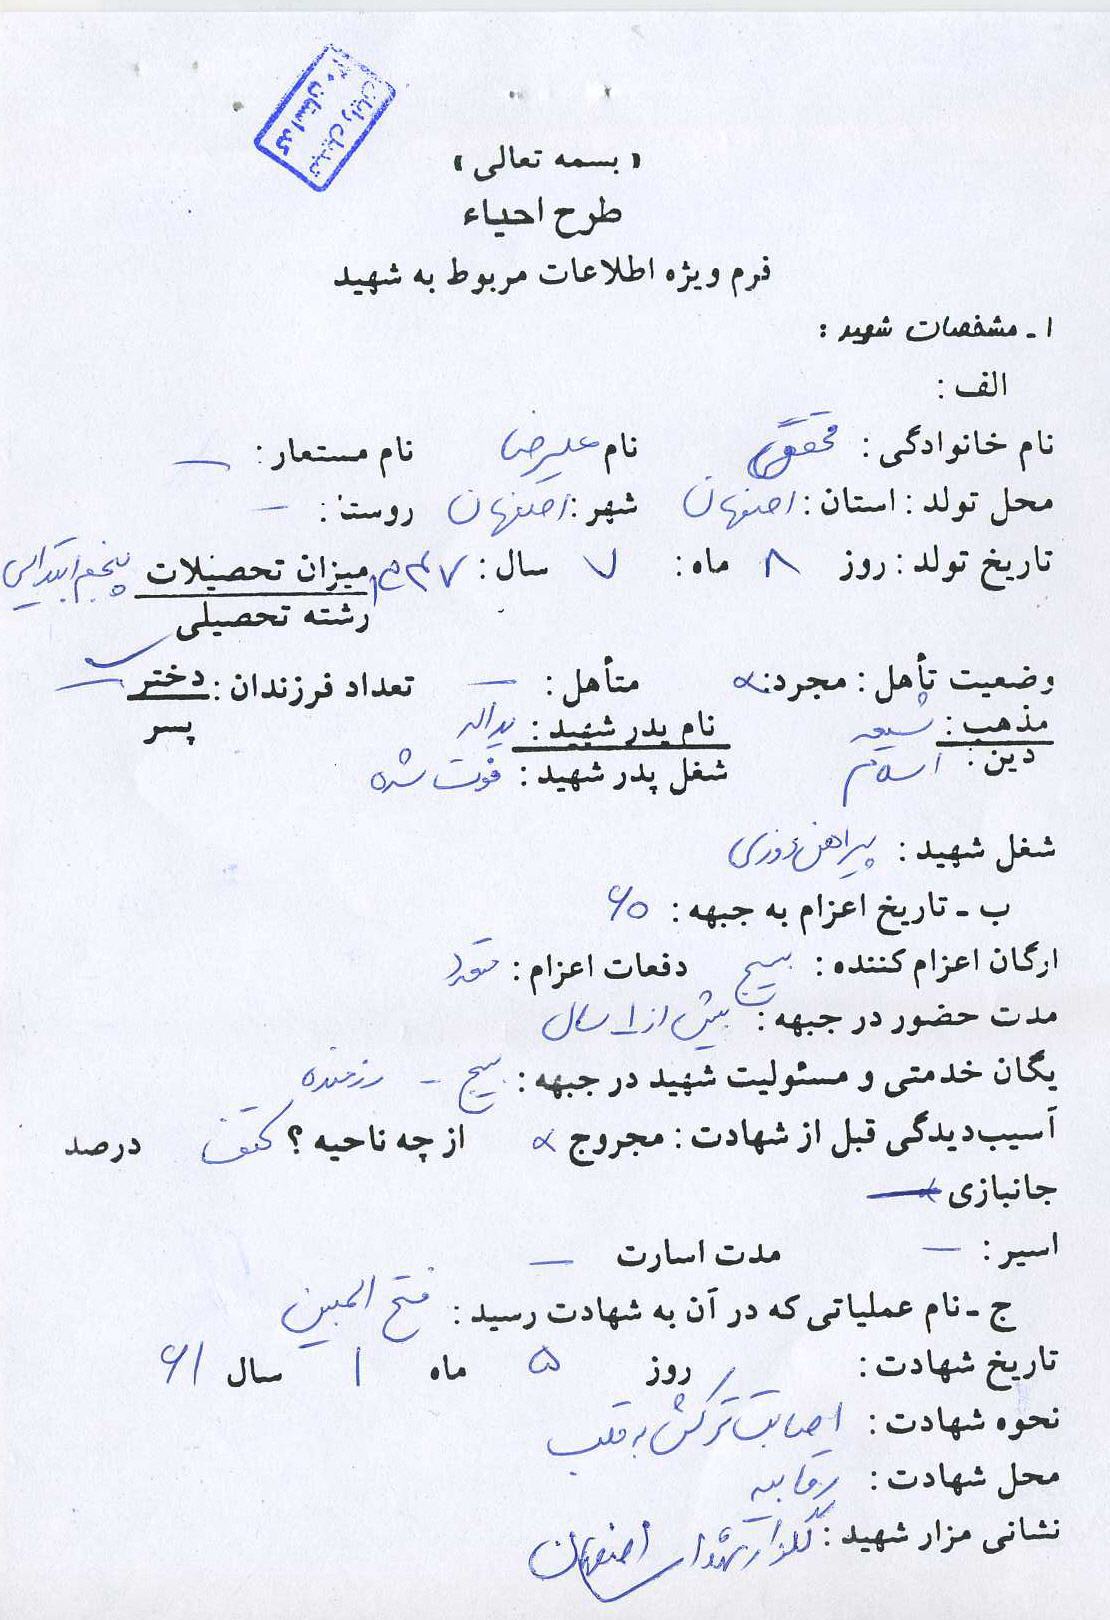 تبدیل رایان
کد استان ۲۰
« بسمه تعالی »
طرح احیاء
فرم ویژه اطلاعات مربوط به شهید
۱ ـ مشخصات شهید :
الف :
نام خانوادگی : محقق نام علیرضا نام مستعار : —
محل تولد : استان : اصفهان شهر : اصفهان روستا : —
تاریخ تولد : روز ۸ ماه : ۷ سال : ۱۳۴۷ میزان تحصیلات پنجم ابتدایی
رشته تحصیلی —
وضعیت تأهل : مجرد : × متأهل : — تعداد فرزندان : دختر —
پسر
مذهب : شیعه نام پدر شهید : یداله
دین : اسلام شغل پدر شهید : فوت شده
شغل شهید : پیراهن دوزی
ب ـ تاریخ اعزام به جبهه : ۶۰
ارگان اعزام کننده : بسیج دفعات اعزام :
مدت حضور در جبهه : بیش از ۱ سال
یگان خدمتی و مسئولیت شهید در جبهه : بسیج – رزمنده
آسیب‌دیدگی قبل از شهادت : مجروح × از چه ناحیه ؟ کتف درصد
جانبازی —
اسیر : — مدت اسارت —
ج ـ نام عملیاتی که در آن به شهادت رسید : فتح المبین
تاریخ شهادت : روز ۵ ماه ۱ سال ۶۱
نحوه شهادت : اصابت ترکش به قلب
محل شهادت : رقابیه
نشانی مزار شهید : گلزار شهدای اصفهان